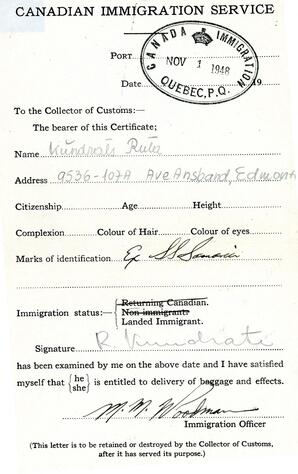 CANADIAN IMMIGRATION SERVICE
CANADA IMMIGRATION
NOV 1 1948
QUEBEC, P.Q.
Port
Date 19
To the Collector of Customs:—
The bearer of this Certificate;
Name Kundrats Ruta
Address 9536-107A Ave Ansband, Edmont
Citizenship Age Height
Complexion Colour of Hair Colour of eyes
Marks of identification Ex SS Samaria
Immigration status:— { Returning Canadian.
Non-immigrants
Landed Immigrant.
Signature R. Kundrats
has been examined by me on the above date and I have satisfied
myself that { he she } is entitled to delivery of baggage and effects.
M. M. Woodman
Immigration Officer
(This letter is to be retained or destroyed by the Collector of Customs,
after it has served its purpose.)